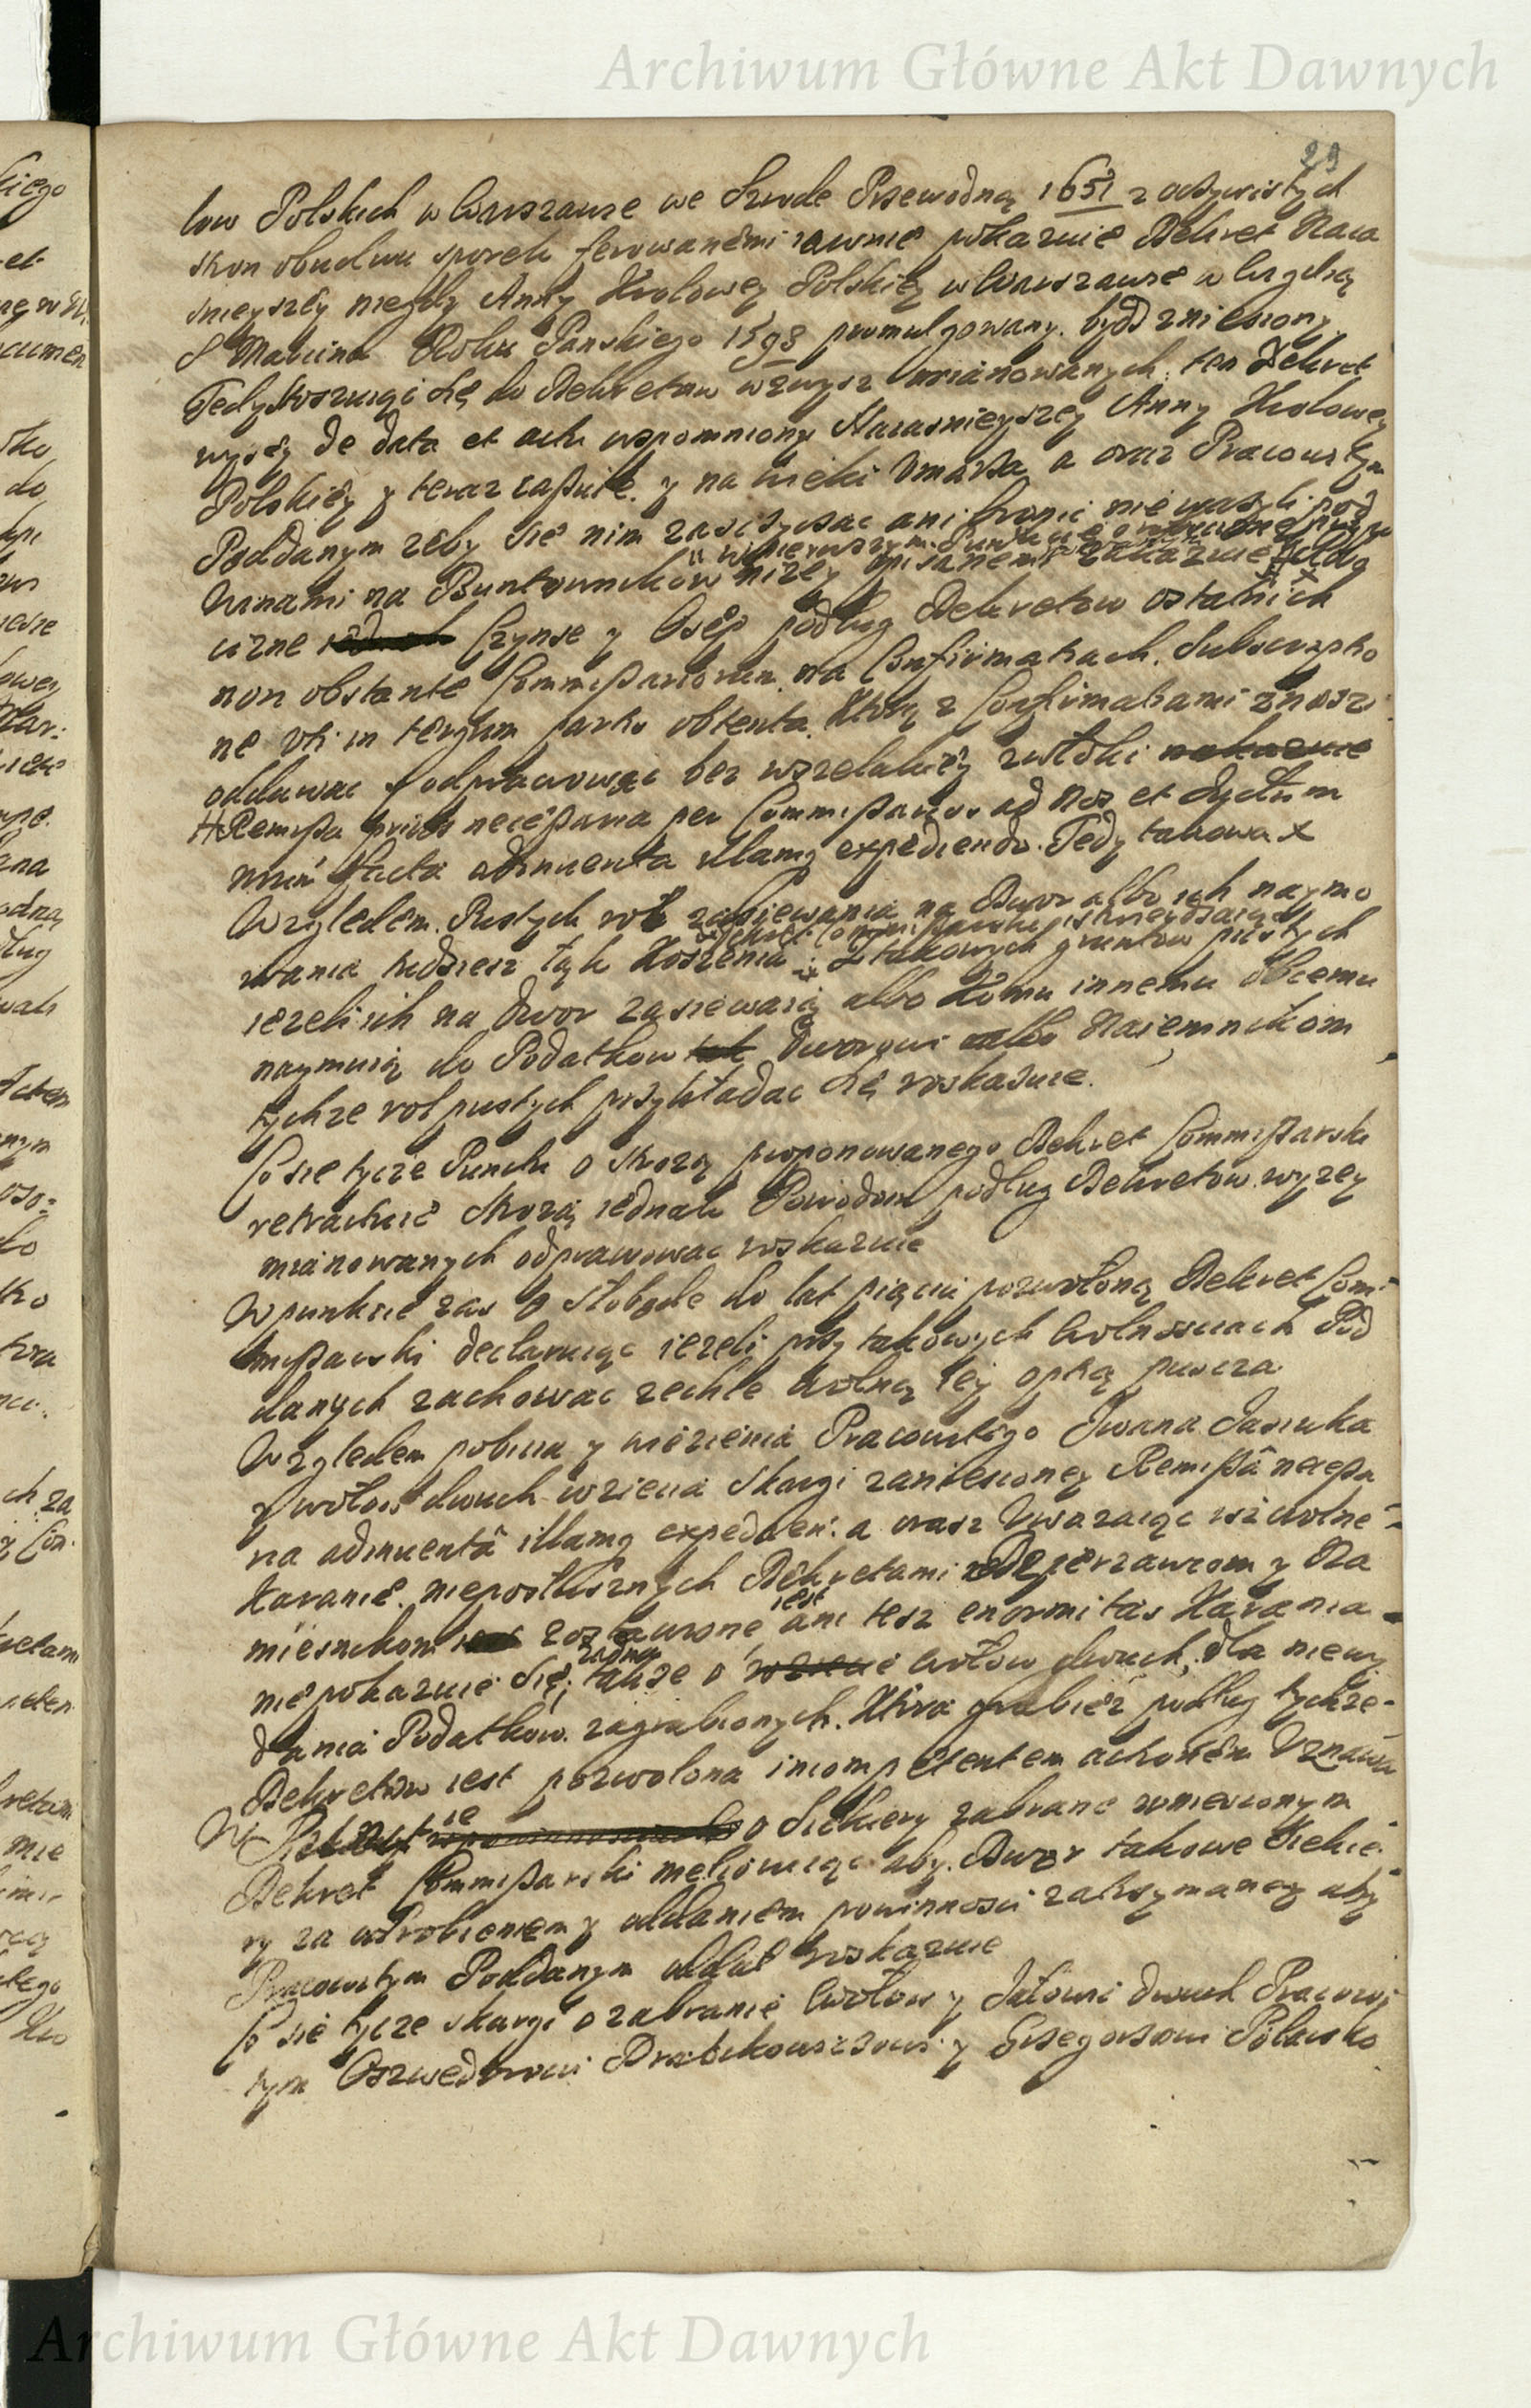 Archiwum Główne Akt Dawnych
29
low Polskich w Warszawie we Srode Przewodną 1651 z oczywistych
stron obudwu sporek ferowanemi iawnie pokazuie Dekret Naia
snieyszey niegdy Anny Krolowey Polskiey w Warszawie w Wigilią
S Marcina Roku Panskiego 1598 promulgowany bydz zniesiony
Tedy stosuiąc się do Dekretow wzwysz mianowanych ten Dekret
wyszey de data et actu wspomniony Naiasnieyszey Anny Krolowey
Polskiey y teraz cassuie y na wieki umarza a oraz Pracowitym
Poddanym zeby się nim zasczycac ani bronic nie wazyli pod
w pierwszym Punkcie
Winami na Buntownikow nizey opisanemi zakazuie
czne Czynsze y Osep podług Dekretow ostatnich
non obstante Commissariorum na Confirmatach Subscriptio
ne uti in tertium parte obtenta Ktorą z Confirmatami znosi
oddawac y odprawowac bez wszelakiey zwłoki nakazuie
Remissa prius necessaria per Commissarios ad Nos et
facta adinventa illamq expediendo. Tedy takowa x
Względem Pustych rol zasiewania na Dwor albo ich naymo
wania tudziesz łąk Koszenia z takowych gruntow pustych
iezeli ich na Dwor zasiewaią albo Komu innemu obcemu
naymuią do Podatkow Dworowi albo Naiemnikom
tychze rol pustych przykładac się roskazuie.
Co się tycze Punktu o Strozą proponowanego Dekret Commissarski
retractuie Strozą iednak Powodom podług Dekretow wyzey
mianowanych odprawowac roskazuie
W punkcie zas o Słobodę do lat pięciu pozwoloną Dekret Com
missarski declaruiąc iezeli przy takowych Wolnosciach Pod
danych zachowac zechce wolną iey opcią puscza
Względem pobicia y więzienia Pracowitego Iwana Jasiuka
y wołow dwuch wzięcia Skargi zaniesioney Remissâ necessa
ria adinventâ illamq expedien: a oraz Uwazaiąc isz wolne
Karanie nieposłusznych Dekretami Dzierzawcom y Na
miesnikom iest zostawione ani tesz enormitas Karania
nie pokazuie się; także o wołow dwuch, dla niewy
dania Podatkow zagrabionych. Ktora grabiesz podług tychze
Dekretow iest pozwolona incompetentem actorem Uznawa
W Punkcie o Siekiery zabrane wniesionym
Dekret Commissarski meliouiąc aby Dwor takowe Siekie
ry za odrobieniem y oddaniem powinnosci zatrzymaney aby
Pracowitym Poddanym oddał roskazuie
Co się tycze skargi o zabranie Wołow y Jałowi dwuch Pracowi
tym Oszwedowi y Grzegorzowi
Archiwum Główne Akt Dawnych